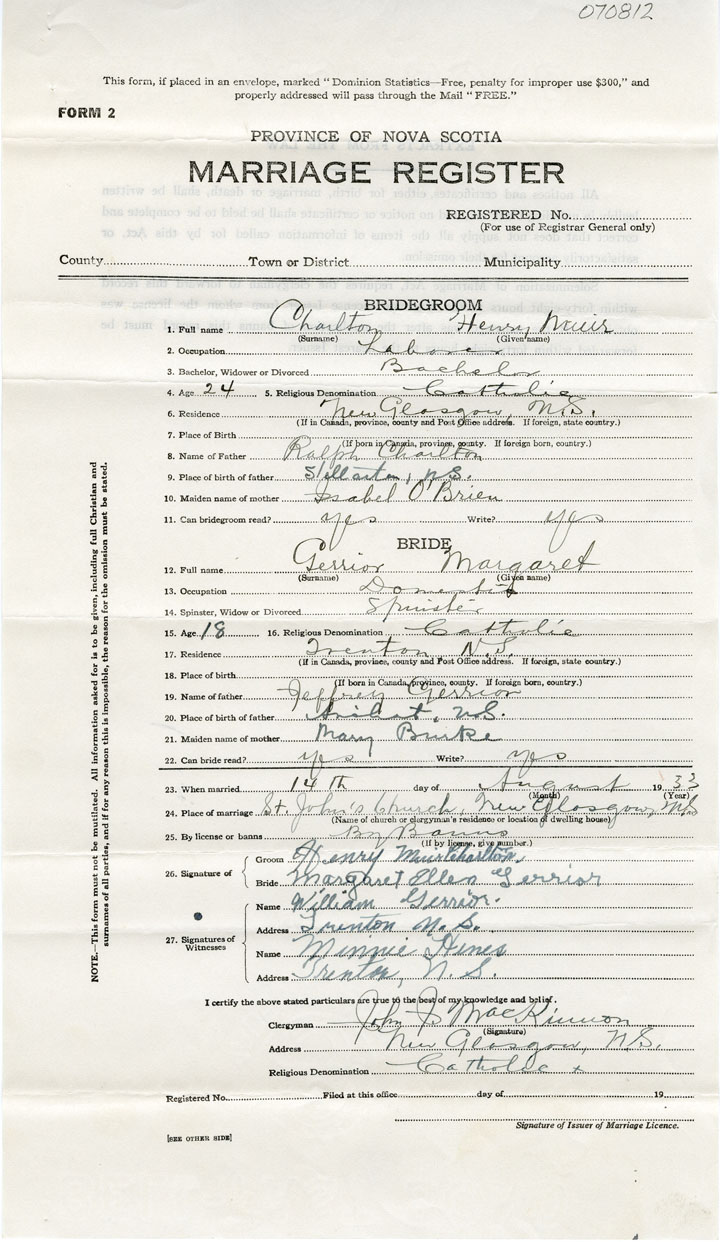 070812
This form, if placed in an envelope, marked "Dominion Statistics—Free, penalty for improper use $300," and
properly addressed will pass through the Mail "FREE."
FORM 2
PROVINCE OF NOVA SCOTIA
MARRIAGE REGISTER
REGISTERED No.
(For use of Registrar General only)
County Town or District Municipality
BRIDEGROOM
1. Full name Charlton Henry Muir
(Surname) (Given name)
2. Occupation Laborer
3. Bachelor, Widower or Divorced Bachelor
4. Age 24 5. Religious Denomination Catholic
6. Residence New Glasgow, N.S.
(If in Canada, province, county and Post Office address. If foreign, state country.)
7. Place of Birth
(If born in Canada, province, county. If foreign born, country.)
8. Name of Father Ralph Charlton
9. Place of birth of father Stellarton, N.S.
10. Maiden name of mother Isabel O'Brien
11. Can bridegroom read? yes Write? yes
BRIDE
12. Full name Gerrior Margaret
(Surname) (Given name)
13. Occupation Domestic
14. Spinster, Widow or Divorced Spinster
15. Age 18 16. Religious Denomination Catholic
17. Residence Trenton N.S.
(If in Canada, province, county and Post Office address. If foreign, state country.)
18. Place of birth
(If born in Canada, province, county. If foreign born, country.)
19. Name of father Jeffrey Gerrior
20. Place of birth of father Arichat, N.S.
21. Maiden name of mother Mary Burke
22. Can bride read? yes Write? yes
23. When married 14th day of August 1933
(Month) (Year)
24. Place of marriage St. John's Church, New Glasgow, N.S.
(Name of church or clergyman's residence or location of dwelling house)
25. By license or banns By Banns
(If by license, give number.)
26. Signature of Groom Henry Muir Charlton
Bride Margaret Ellen Gerrior
27. Signatures of Witnesses Name William Gerrior.
Address Trenton N.S.
Name Minnie Hines
Address Trenton, N.S.
I certify the above stated particulars are true to the best of my knowledge and belief.
Clergyman John J. MacKinnon
(Signature)
Address New Glasgow, N.S.
Religious Denomination Catholic
Registered No. Filed at this office day of 19
Signature of Issuer of Marriage Licence.
[SEE OTHER SIDE]
NOTE.—This form must not be mutilated. All information asked for is to be given, including full Christian and
surnames of all parties, and if for any reason this is impossible, the reason for the omission must be stated.